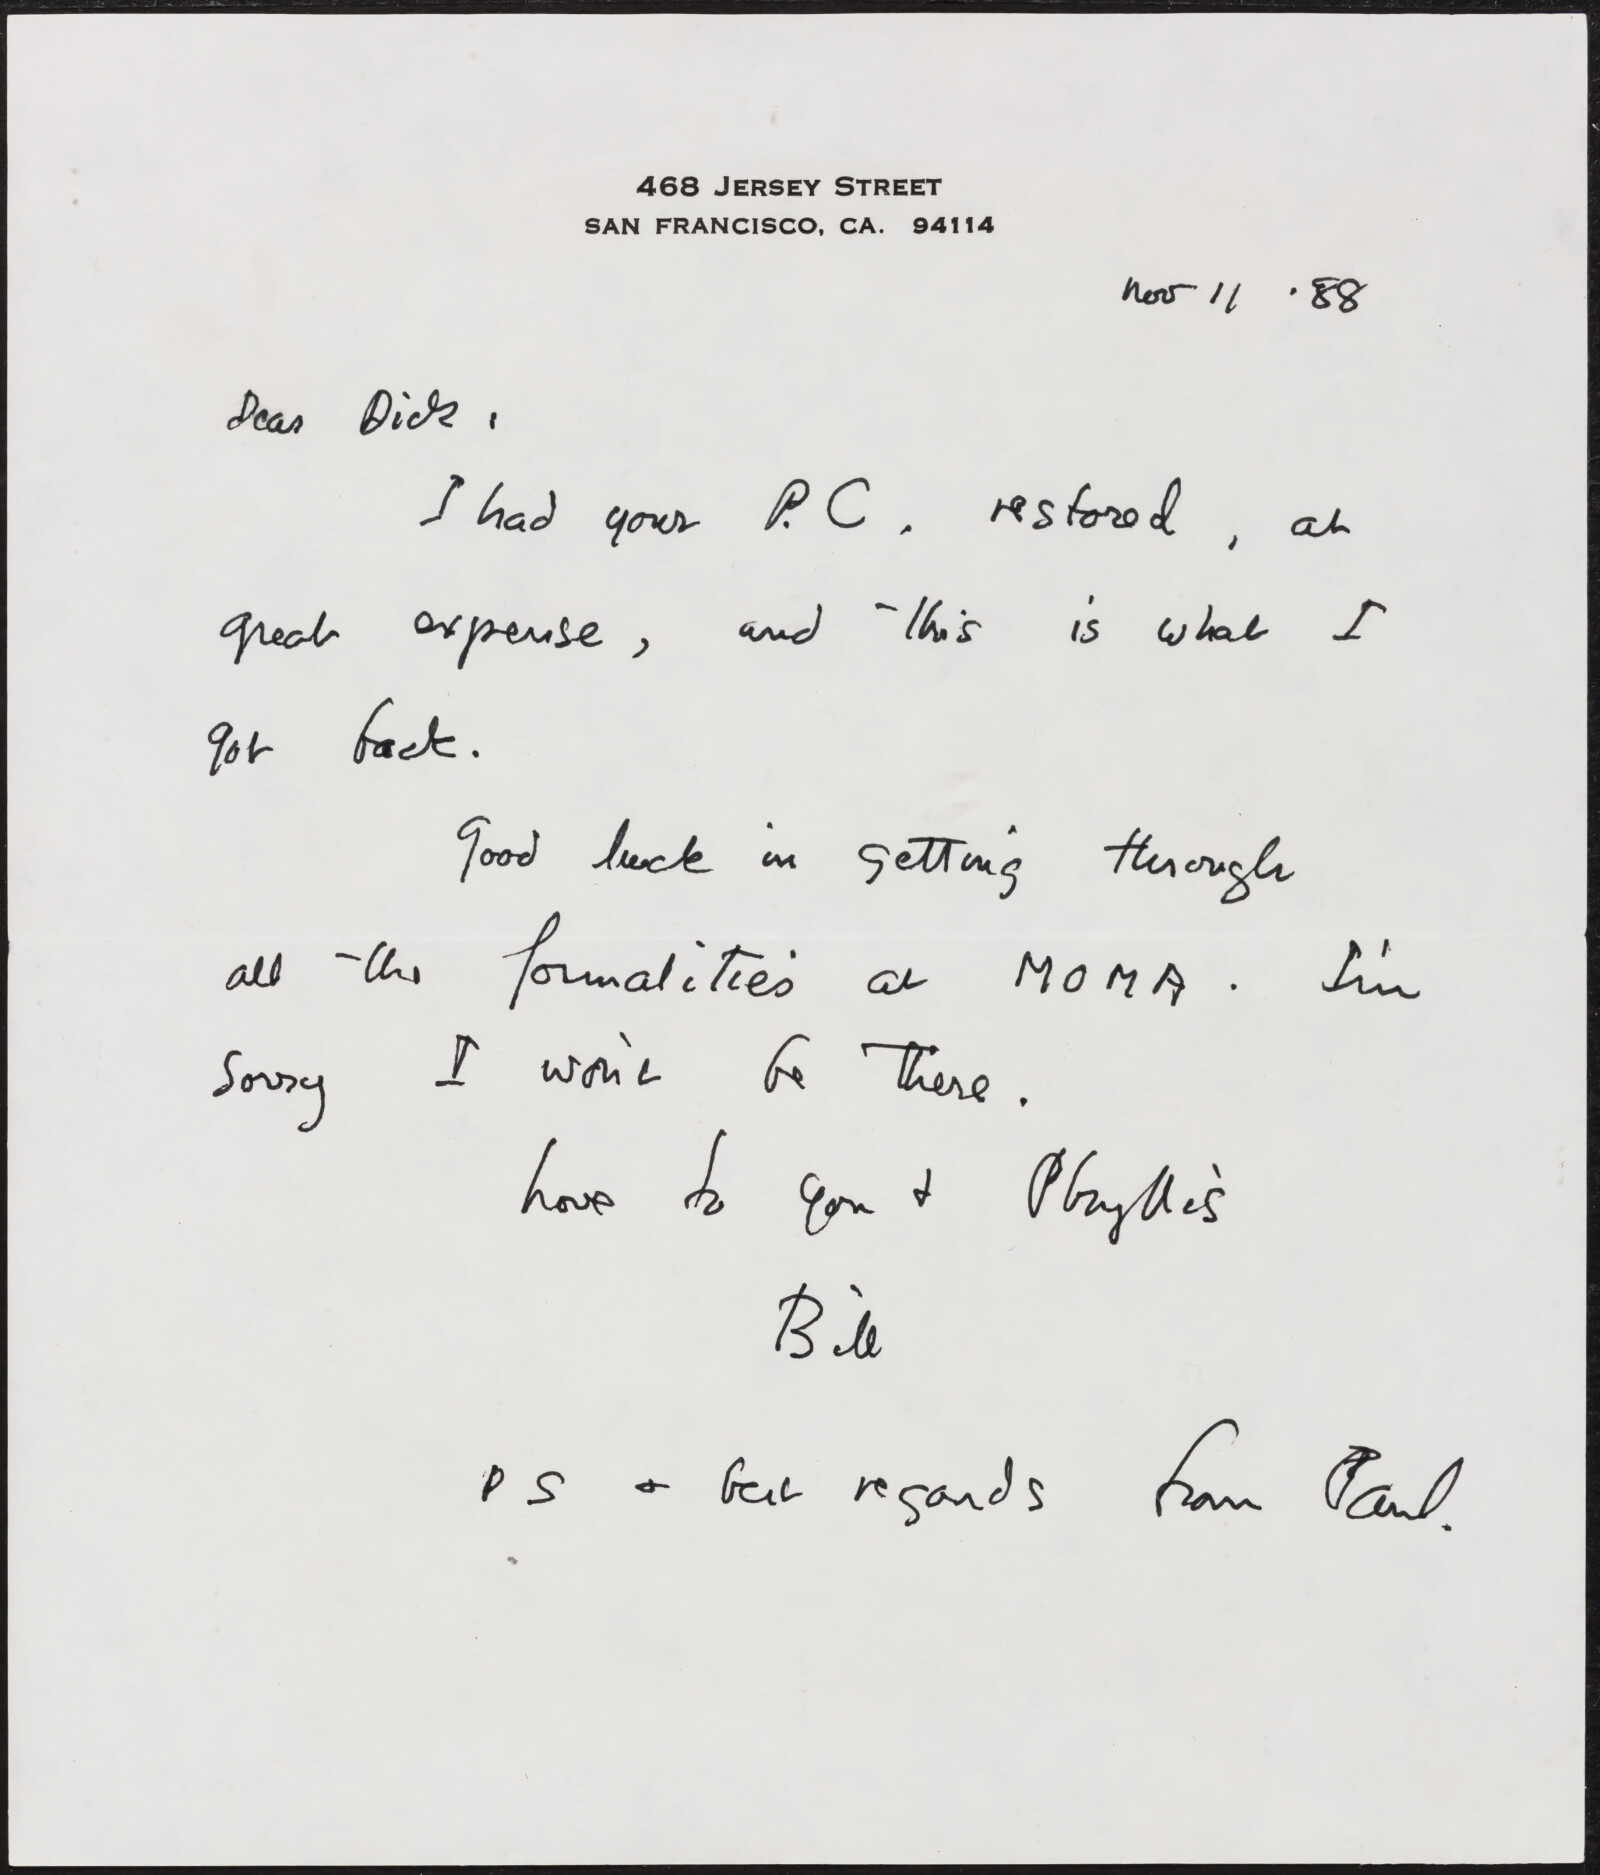 468 JERSEY STREET
SAN FRANCISCO, CA. 94114
Nov 11 '88
Dear Dick,
I had your P.C. restored, at
great expense, and this is what I
got back.
Good luck in getting through
all the formalities at MOMA. I'm
sorry I won't be there.
Love to you & Phyllis
Bill
PS & best regards from Paul.